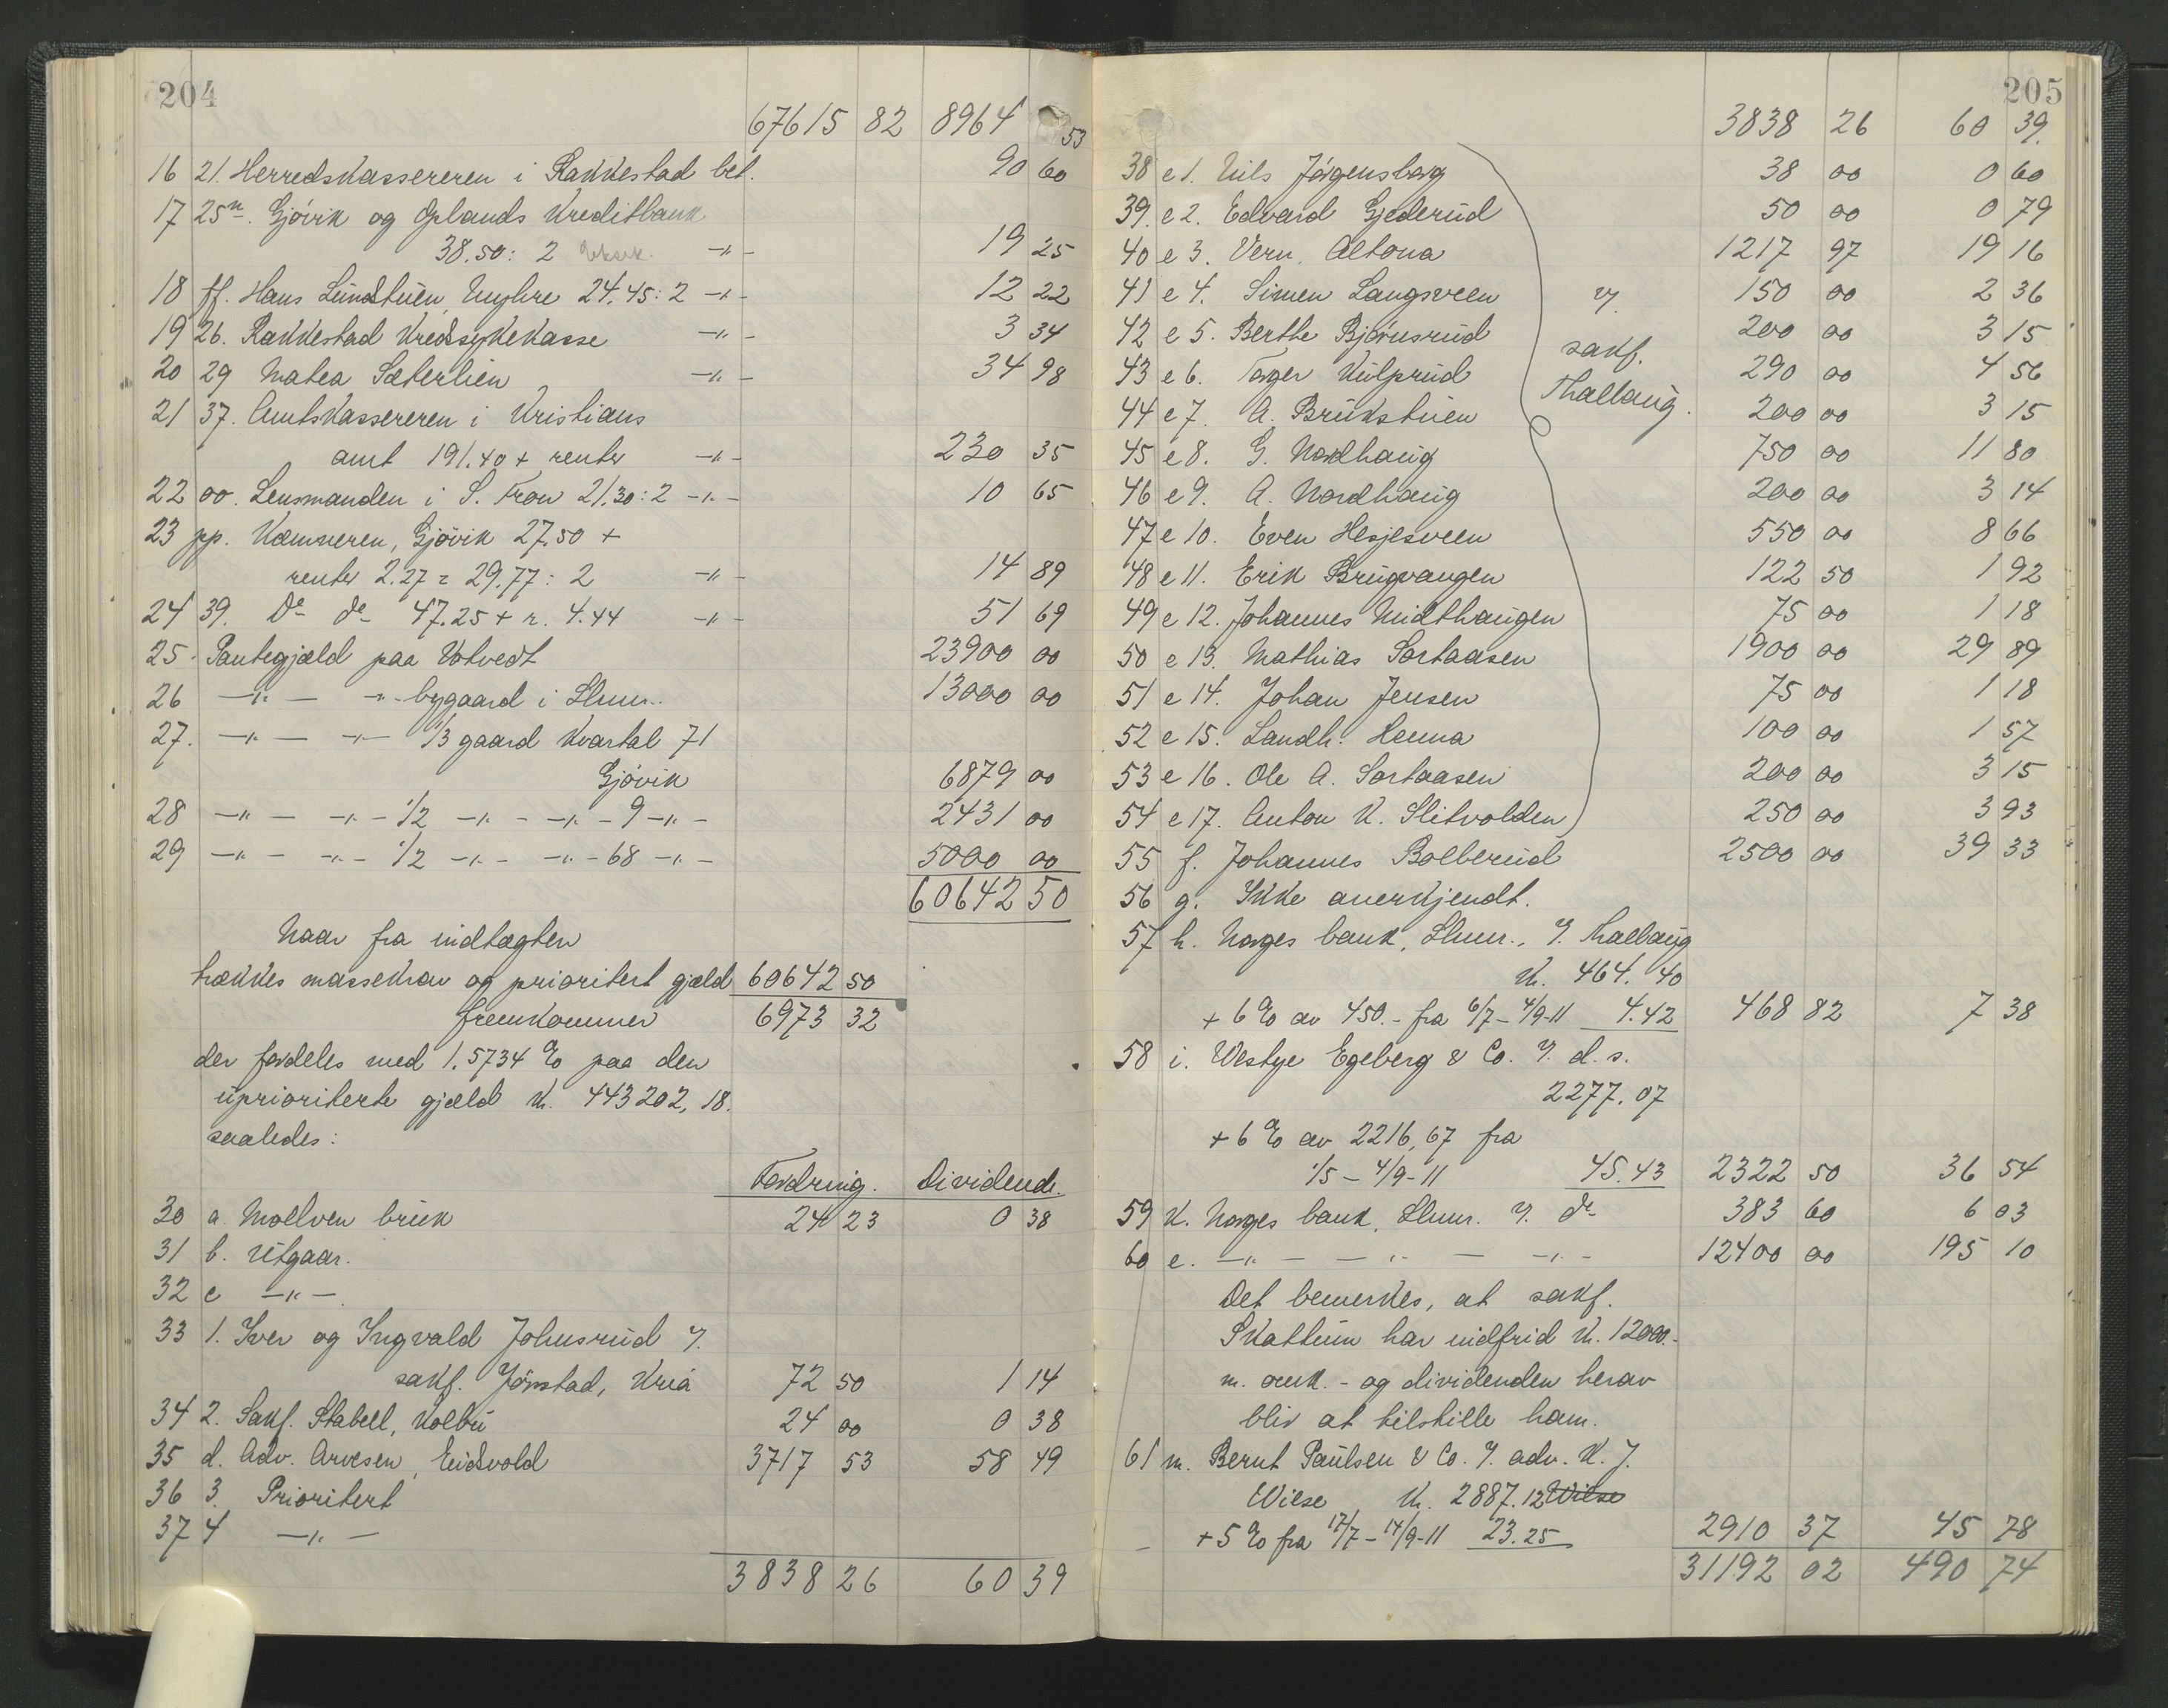 204
67615 82 8964 53
16 21. Herredskassereren i Rakkestad bet. 90 60
17 25n. Gjövik og Oplands Kreditbank
38.50: 2 -"- 19 25
18 ff. Hans Lundstuen, Myhre 24.45: 2 -"- 12 22
19 26. Rakkestad Kredssykekasse -"- 3 34
20 29 Matea Sæterlien -"- 34 98
21 37. Amtskassereren i Kristians
amt 191.40 + renter -"- 230 35
22 oo. Lensmanden i S. Fron 21.30: 2 -"- 10 65
23 pp. Kæmneren, Gjövik 27.50 +
renter 2.27 = 29.77: 2 -"- 14 89
24 39. Do do 47.25 + r. 4.44 -"- 51 69
25. Pantegjæld paa Votvedt 23900 00
26 -"- -"- bygaard i Lhmr. 13000 00
27. -"- -"- 1/3 gaard Kvartal 71
Gjövik 6879 00
28 -"- -"- 1/2 -"- -"- 9 -"- 2431 00
29 -"- -"- 1/2 -"- -"- 68 -"- 5000 00
60642 50
Naar fra indtægten
trækkes massekrav og prioritert gjæld 60642 50
fremkommer 6973 32
der fordeles med 1.5734 % paa den
uprioriterte gjæld Kr. 443202,18.
saaledes:
Fordring. Dividende.
30 a. Moelven bruk 24 23 0 38
31 b. Utgaar.
32 c -"-
33 1. Iver og Ingvald Johnsrud v.
sakf. Jönstad, Kria 72 50 1 14
34 2. Sakf. Stabell, Kolbu 24 00 0 38
35 d. Adv. Arvesen, Eidsvold 3717 53 58 49
36 3. Prioritert
37 4 -"-
3838 26 60 39
205
3838 26 60 39.
38 e 1. Nils Jörgensborg 38 00 0 60
39. e 2. Edvard Gjederud 50 00 0 79
40 e 3. Vern. Altona 1217 97 19 16
41 e 4. Simen Langsveen v. 150 00 2 36
42 e 5. Berthe Bjørnsrud sakf. 200 00 3 15
43 e 6. Torger Kulprud Thallaug. 290 00 4 56
44 e 7. A. Brukstuen 200 00 3 15
45 e 8. G. Nordhaug 750 00 11 80
46 e 9. A. Nordhaug 200 00 3 14
47 e 10. Even Hesjesveen 550 00 8 66
48 e 11. Erik Brugvangen 122 50 1 92
49 e 12. Johannes Midthaugen 75 00 1 18
50 e 13. Mathias Sortaasen 1900 00 29 89
51 e 14. Johan Jensen 75 00 1 18
52 e 15. Landh. Henna 100 00 1 57
53 e 16. Ole A. Sortaasen 200 00 3 15
54 e 17. Anton K. Slitvolden 250 00 3 93
55 f. Johannes Bolberud 2500 00 39 33
56 g. Ikke anerkjendt.
57 h. Norges bank, Lhmr., v. Thallaug
Kr. 464.40
+ 6 % av 450.- fra 6/7 - 4/9-11 4.42 468 82 7 38
58 i. Westye Egeberg & Co. v. d.s.
2277.07
+ 6 % av 2216,67 fra
1/5 - 4/9-11 45.43 2322 50 36 54
59 k. Norges bank, Lhmr. v. do 383 60 6 03
60 e. -"- -"- -"- 12400 00 195 10
Det bemerkes, at sakf.
Skattum har indfrid Kr. 12000.-
m. omk. - og dividenden herav
blir at tilstille ham.
61 m. Bernt Paulsen & Co. v. adv. K. J.
Wilse Kr. 2887.12 Wilse
+ 5 % fra 17/7 - 14/9-11 23.25 2910 37 45 78
31192 02 490 74